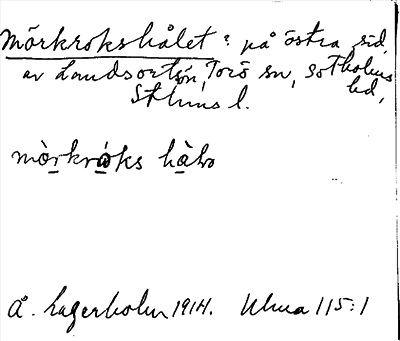 Mörkrokshålet: på östra sid.
av Landsortsön, Torö sn, Sotholms
hd,
Sthlms l.
mòrkròks hàlo
Å. Lagerholm 1914. Ulma 115:1